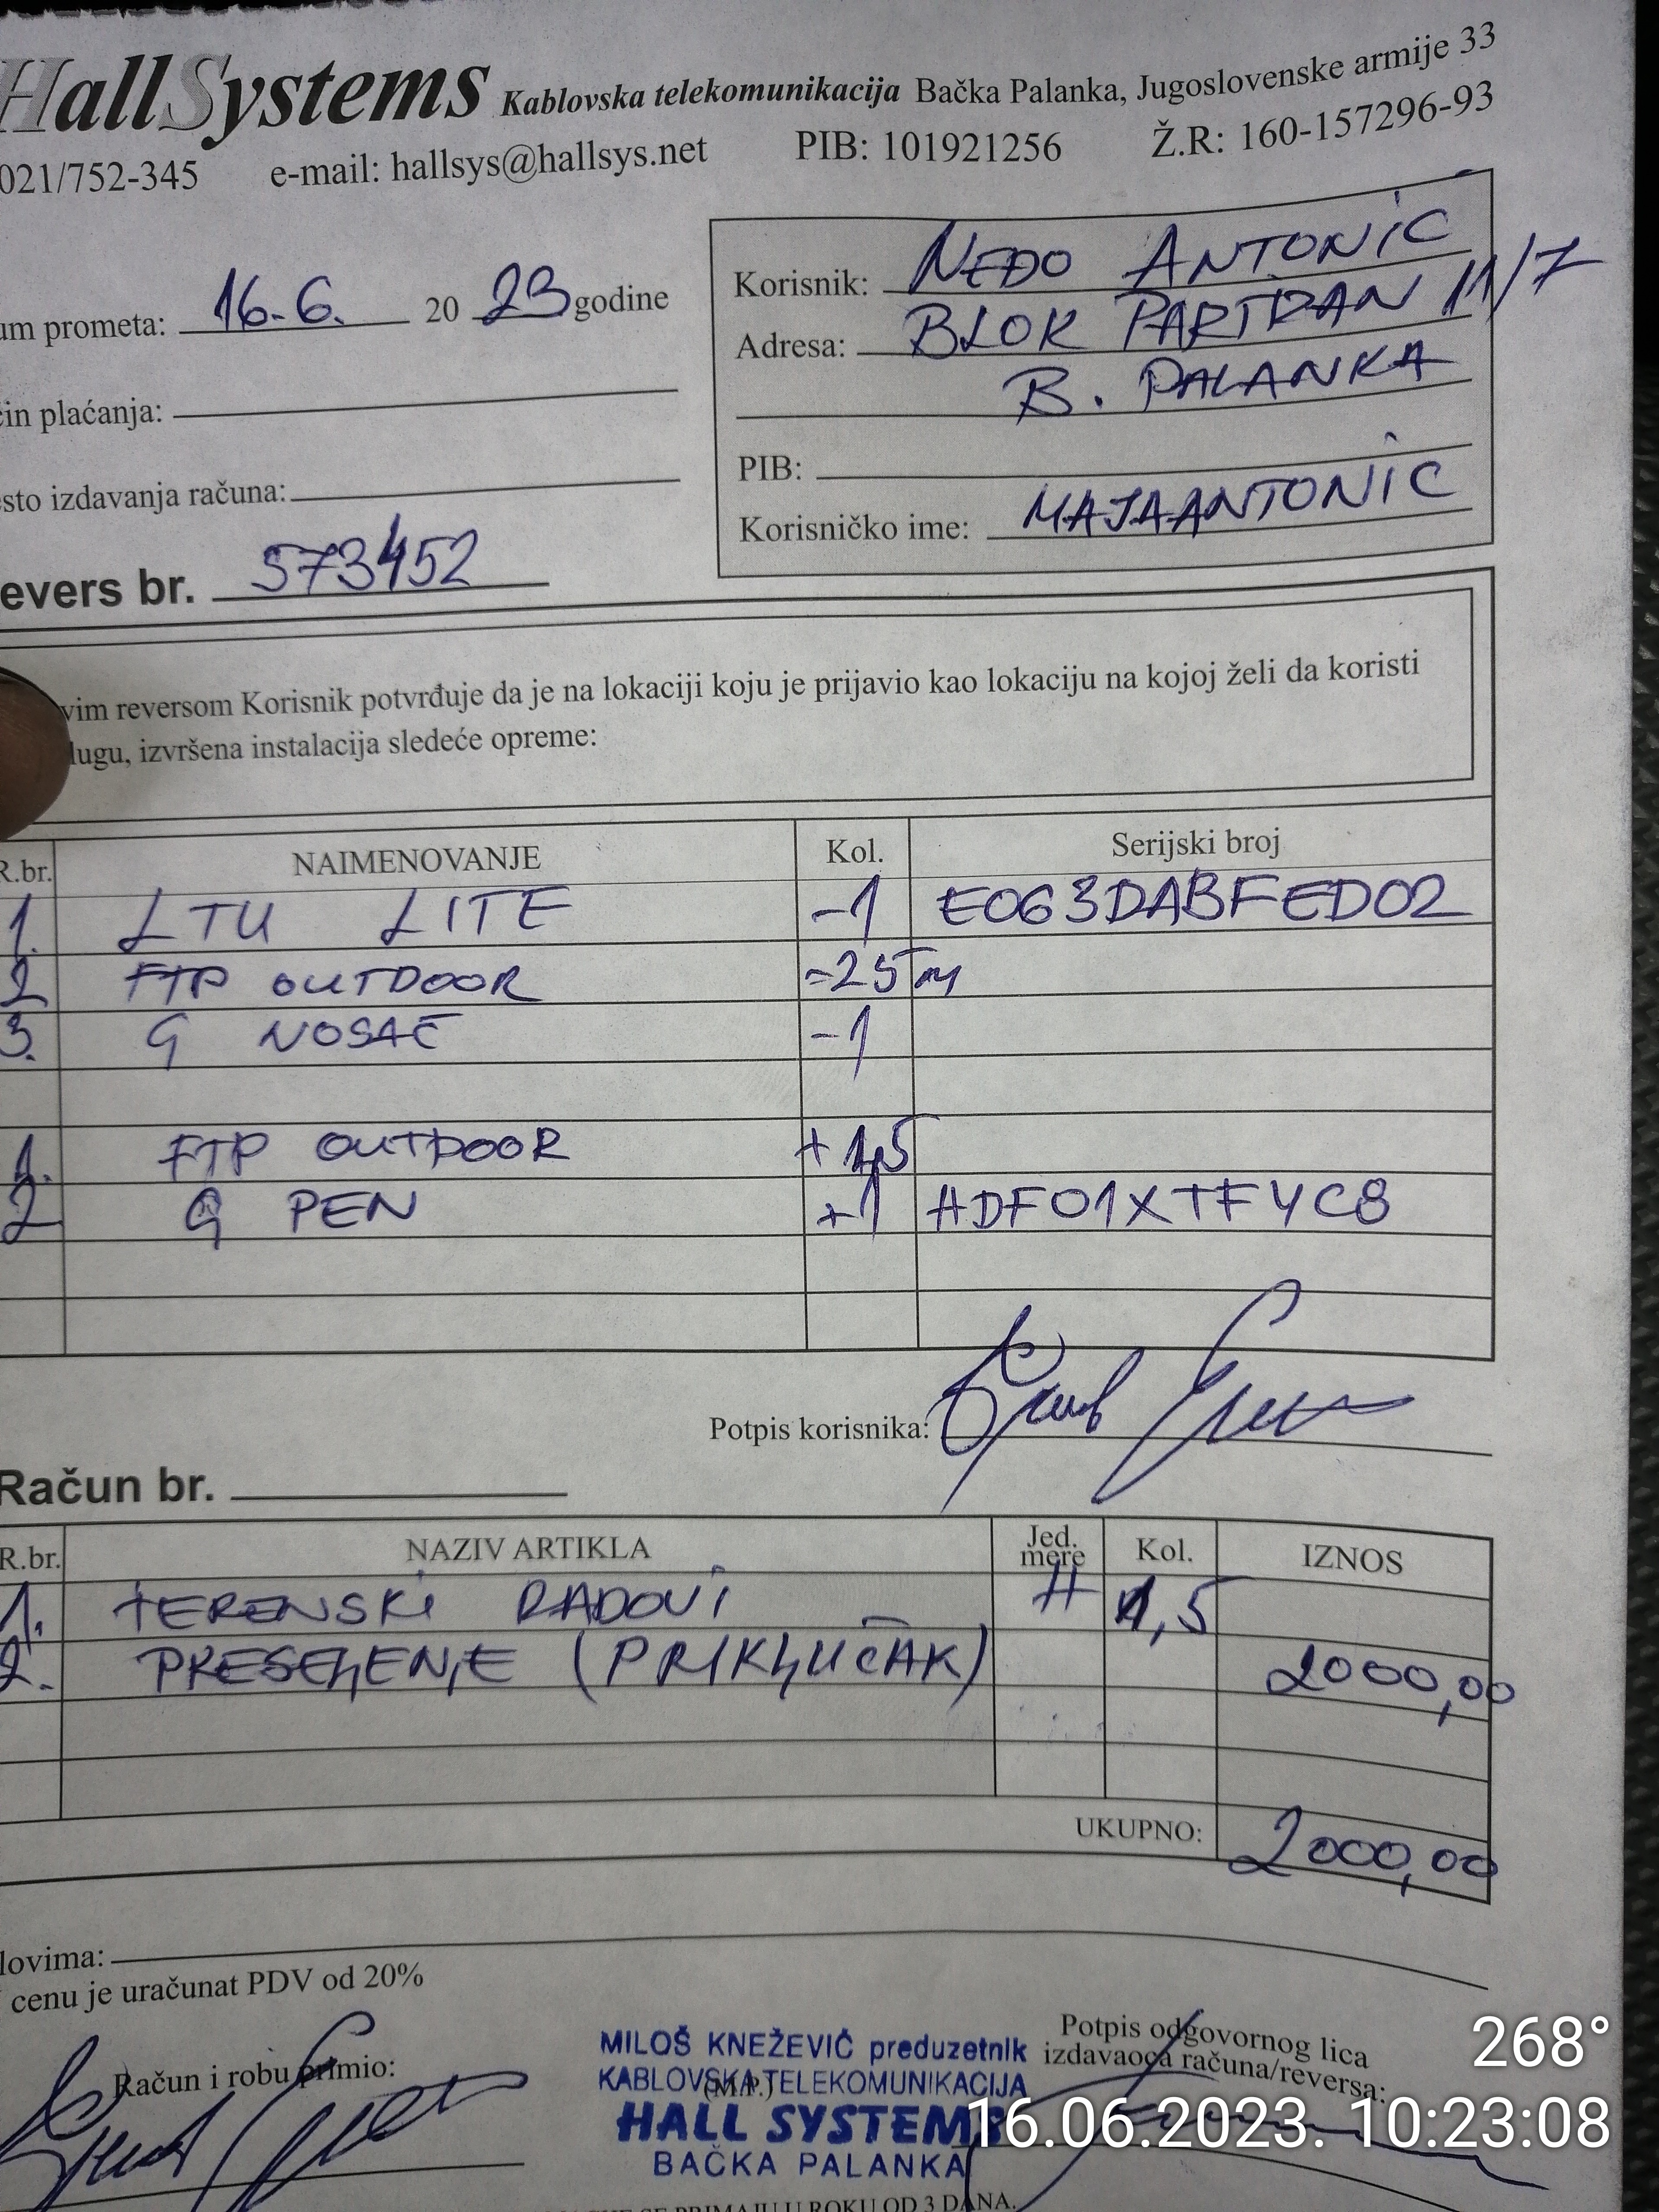 HallSystems Kablovska telekomunikacija Bačka Palanka, Jugoslovenske armije 33
021/752-345 e-mail: hallsys@hallsys.net PIB: 101921256 Ž.R: 160-157296-93
um prometa: 16.6. 20 23 godine
Korisnik: NEĐO ANTONIĆ
Adresa: BLOK PARTIZAN 11/7
B. PALANKA
čin plaćanja:
PIB:
esto izdavanja računa:
Korisničko ime: MAJAANTONIC
evers br. 573452
vim reversom Korisnik potvrđuje da je na lokaciji koju je prijavio kao lokaciju na kojoj želi da koristi
lugu, izvršena instalacija sledeće opreme:
R.br. NAIMENOVANJE Kol. Serijski broj
1. LTU LITE -1 E063DABFED02
2 FTP OUTDOOR -25m
3. G NOSAČ -1
1. FTP OUTDOOR +1,5
2 G PEN +1 HDF01XTFYC8
Potpis korisnika:
Račun br.
R.br. NAZIV ARTIKLA Jed. mere Kol. IZNOS
1. TERENSKI RADOVI H 1,5
2. PRESELJENJE (PRIKLJUČAK) 2000,00
UKUPNO: 2000,00
lovima:
cenu je uračunat PDV od 20%
Račun i robu primio:
MILOŠ KNEŽEVIĆ preduzetnik
KABLOVSKA TELEKOMUNIKACIJA
(M.P.)
HALL SYSTEMS
BAČKA PALANKA
Potpis odgovornog lica
izdavaoca računa/reversa:
268°
16.06.2023. 10:23:08
SE PRIMAJU U ROKU OD 3 DANA.